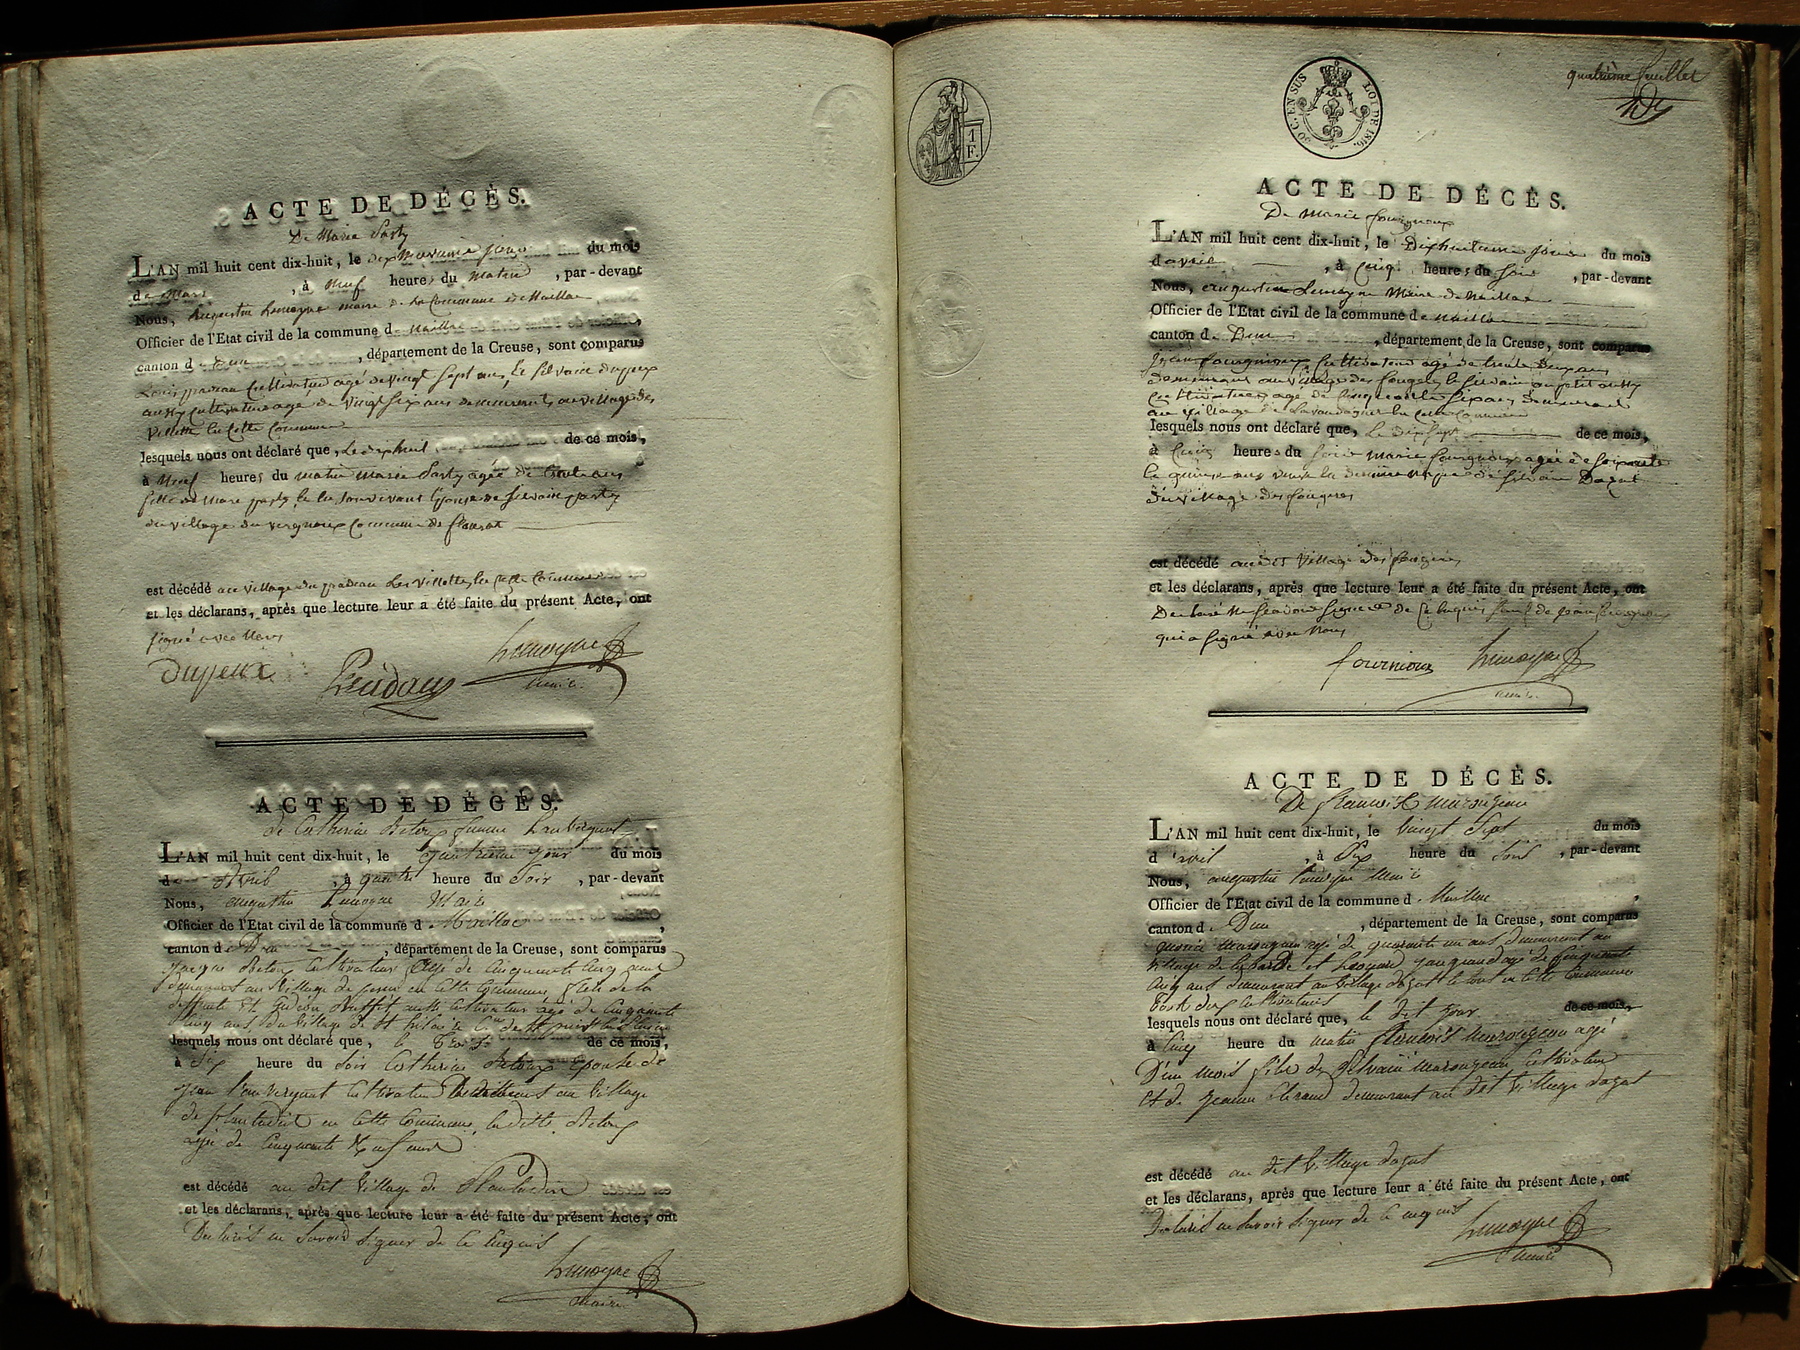 ACTE DE DÉCÈS.
De Marie Party
L'AN mil huit cent dix-huit, le dix neuvaine jour du mois
de Mars, à neuf heures du matin, par-devant
Nous, augustin Lemoyne maire de la Commune de Maillac
Officier de l'Etat civil de la commune de
canton de Dun, département de la Creuse, sont comparus
Louis cultivateur agé de vingt sept ans, & Silvain dupeux
aussy cultivateur age de vingt six ans demeurants au village des
Villette en Cette Commune
lesquels nous ont déclaré que, le dixhuit de ce mois,
à neuf heures du matin Marie Party agée de trente ans
fille de Marc party Epouse de Silvain party
du village du vergnoux Commune de
est décédé au village du les Villettes en Cette Commune
et les déclarans, après que lecture leur a été faite du présent Acte, ont
signé avec Nous
Dupeux Lemoyne
maire
ACTE DE DÉCÈS.
de Catherine Betoux femme Lauvergnat
L'AN mil huit cent dix-huit, le quatrieme jour du mois
d avril, à quatre heure du soir, par-devant
Nous, augustin Lemoyne Maire
Officier de l'Etat civil de la commune d Maillac
canton de Dun, département de la Creuse, sont comparus
cultivateur agé de cinquante cinq ans
demeurant au Village de en cette Commune, frere de la
deffunte et aussi cultivateur agé de cinquante
cinq ans du village de St hilaire
lesquels nous ont déclaré que, le trois de ce mois,
à six heure du soir Catherine Betoux Epouse de
jean Lauvergnat cultivateur demeurant au Village
de en cette Commune, la ditte Betoux
agée de cinquante Neuf ans
est décédé au dit Village de
et les déclarans, après que lecture leur a été faite du présent Acte, ont
Declaré ne savoir signer de ce Enquis
Lemoyne
maire
quatrième feuillet
1 F.
50 C. EN SUS LOI DE 1816.
ACTE DE DÉCÈS.
De Marie fourgnoux
L'AN mil huit cent dix-huit, le Dixhuitieme jour du mois
d avril, à Cinq heures du soir, par-devant
Nous, augustin Lemoyne Maire de Maillac
Officier de l'Etat civil de la commune de Maillac
canton de Dun, département de la Creuse, sont comparus
jean fourgnioux Cultivateur agé de trente deux ans
demeurant au village des fougeres & Silvain aussy
Cultivateur agé de Cinquante six ans demeurant
au Village de en Cette Commune
lesquels nous ont déclaré que, le dix sept de ce mois,
à Cinq heures du soir Marie fourgnoux agée de soixante
& quinze ans veuve de Silvain Dagut
du village des fougeres
est décédé au dit Village des fougeres
et les déclarans, après que lecture leur a été faite du présent Acte, ont
Declaré ne scavoir signer de Ce Enquis sauf jean fourgnoux
qui a signé avec Nous
fournioux Lemoyne
maire
ACTE DE DÉCÈS.
De françois Marougeau
L'AN mil huit cent dix-huit, le Vingt Sept du mois
d'avril, à Six heure du Soir, par-devant
Nous, augustin Lemoyne Maire
Officier de l'Etat civil de la commune d Maillac
canton de Dun, département de la Creuse, sont comparus
Marougeau agé de quarante un ans demeurant au
Village de et Leonard agé de cinquante
Cinq ans demeurant au Village dagut le tout en Cette Commune
Cultivateurs
lesquels nous ont déclaré que, le dit jour de ce mois,
à Cinq heure du matin françois Marougeau agé
D'un mois fils de Silvain Marougeau Cultivateur
Et de Jeanne demeurant au dit Village dagut
est décédé au dit Village dagut
et les déclarans, après que lecture leur a été faite du présent Acte, ont
Declaré ne savoir signer de Ce enquis
Lemoyne
maire